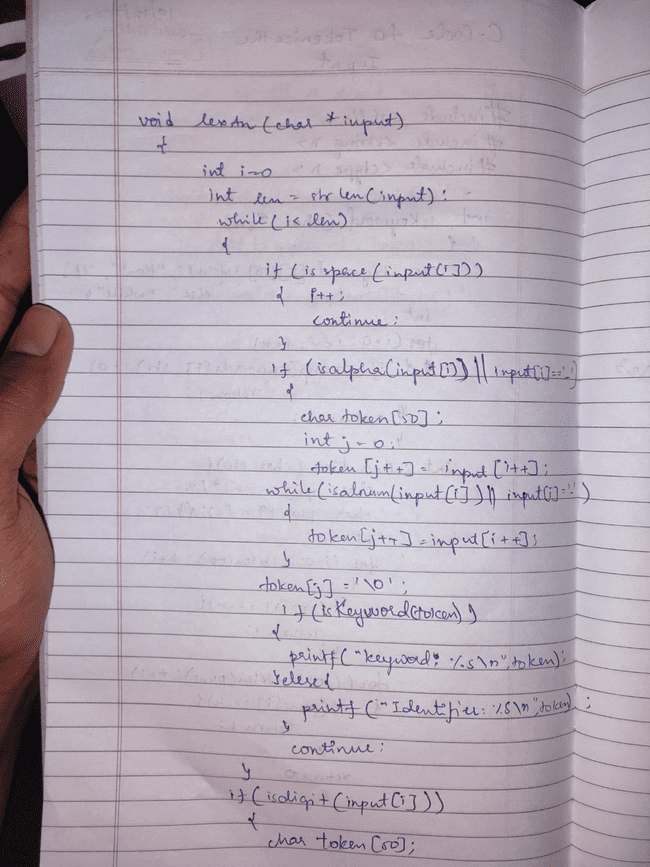 void lexAn (char * input)
{
int i=0
int len = strlen(input);
while (i<len)
{
if (isspace (input[i]))
{ i++;
continue;
}
if (isalpha(input[i]) || input[i]=='_'
{
char token[50];
int j = 0;
token [j++] = input [i++];
while(isalnum(input[i])|| input[i]=='_')
{
token[j++] = input[i++];
}
token[j] = '\0';
if (isKeyword(token))
{
printf("keyword: %s\n",token);
}else{
printf ("Identifier: %s\n",token) ;
}
continue;
}
if (isdigit (input[i]))
{
char token [50];